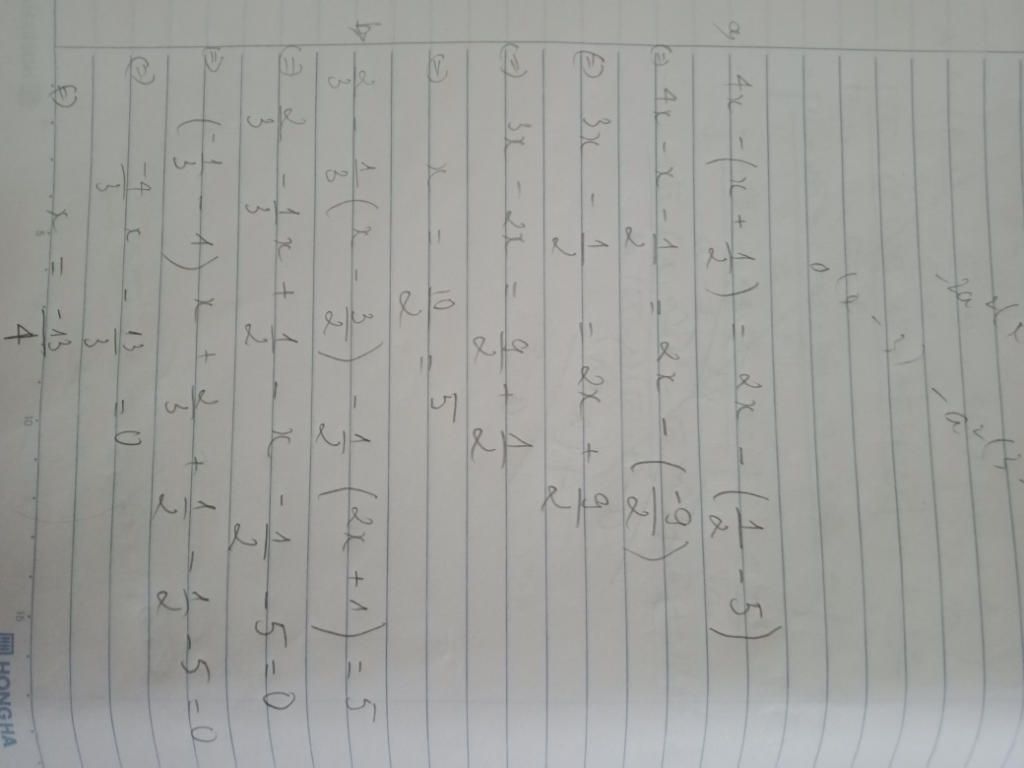 a, 4x - (x + 1/2) = 2x - (1/2 - 5)
(=) 4x - x - 1/2 = 2x - (-9/2)
(=) 3x - 1/2 = 2x + 9/2
(=) 3x - 2x = 9/2 + 1/2
(=) x = 10/2 = 5
b, 2/3 - 1/3 (x - 3/2) - 1/2 (2x + 1) = 5
(=) 2/3 - 1/3 x + 1/2 - x - 1/2 - 5 = 0
(=) (-1/3 - 1) x + 2/3 + 1/2 - 1/2 - 5 = 0
(=) -4/3 x - 13/3 = 0
(=) x = -13/4
5 10 15
HONGHA